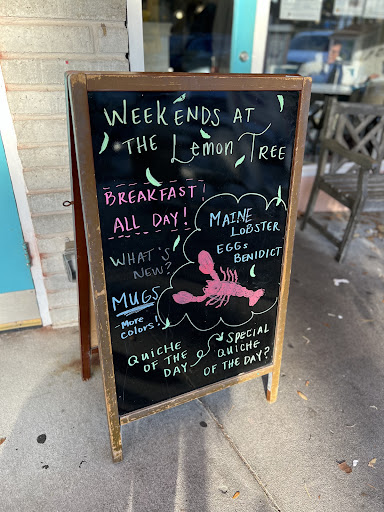 WEEKENDS AT
THE Lemon Tree
BREAKFAST
ALL DAY!
WHAT'S
NEW?
MUGS
-More
colors!
MAINE
LOBSTER
EGGS
BENIDICT
QUICHE
OF THE
DAY
SPECIAL
QUICHE
OF THE DAY?